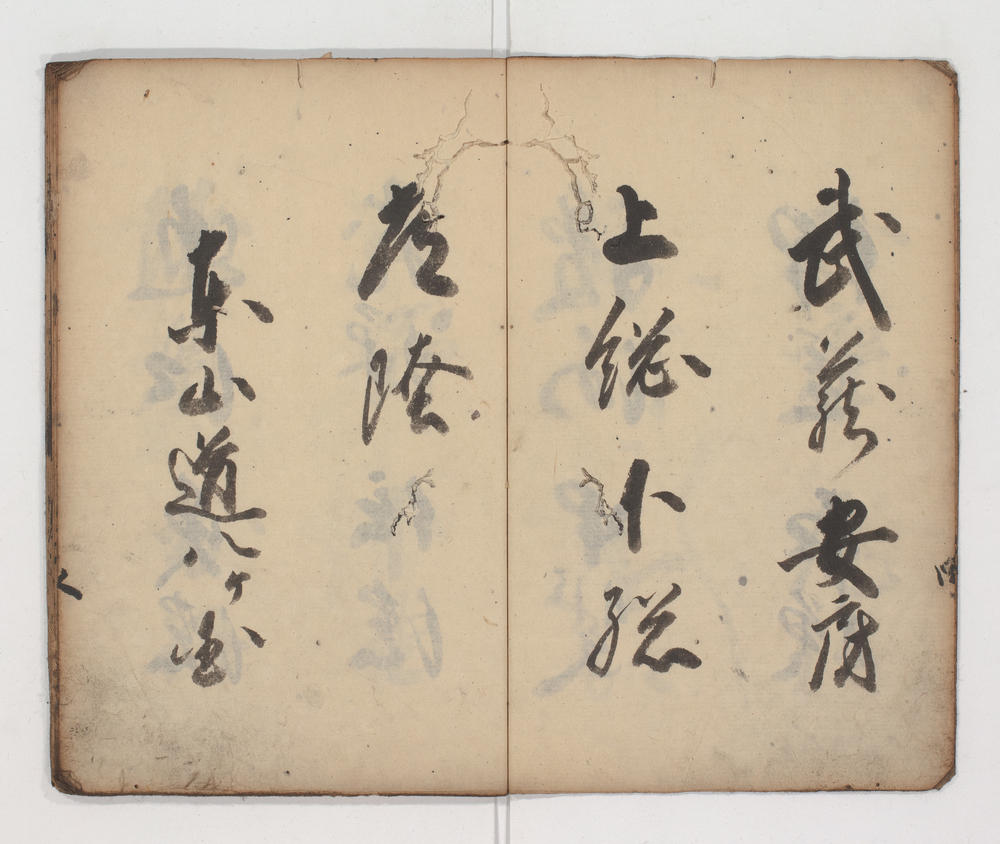 武蔵安房
上総下総
常陸
東山道八ケ国